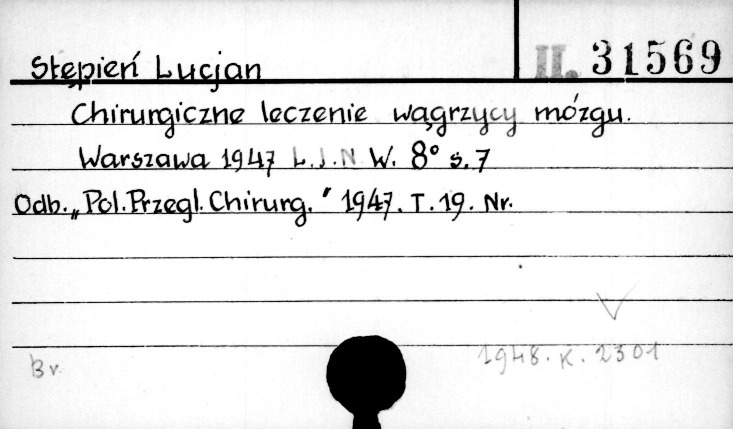 Stępień Lucjan
II. 31569
Chirurgiczne leczenie wągrzycy mózgu.
Warszawa 1947 L.I.N. W. 8° s. 7
Odb. „Pol. Przegl. Chirurg." 1947. T. 19. Nr.
Br 1948. K. 2301